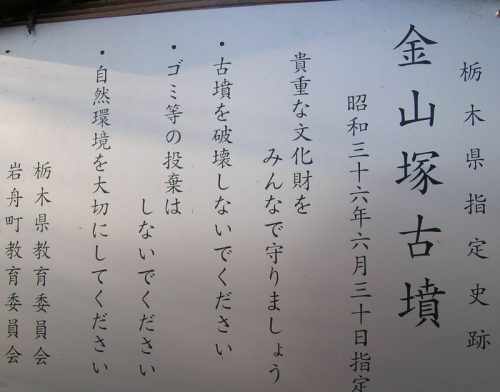 栃木県指定史跡
金山塚古墳
昭和三十六年六月三十日指定
貴重な文化財を
みんなで守りましょう
・古墳を破壊しないでください
・ゴミ等の投棄は
しないでください
・自然環境を大切にしてください
栃木県教育委員会
岩舟町教育委員会